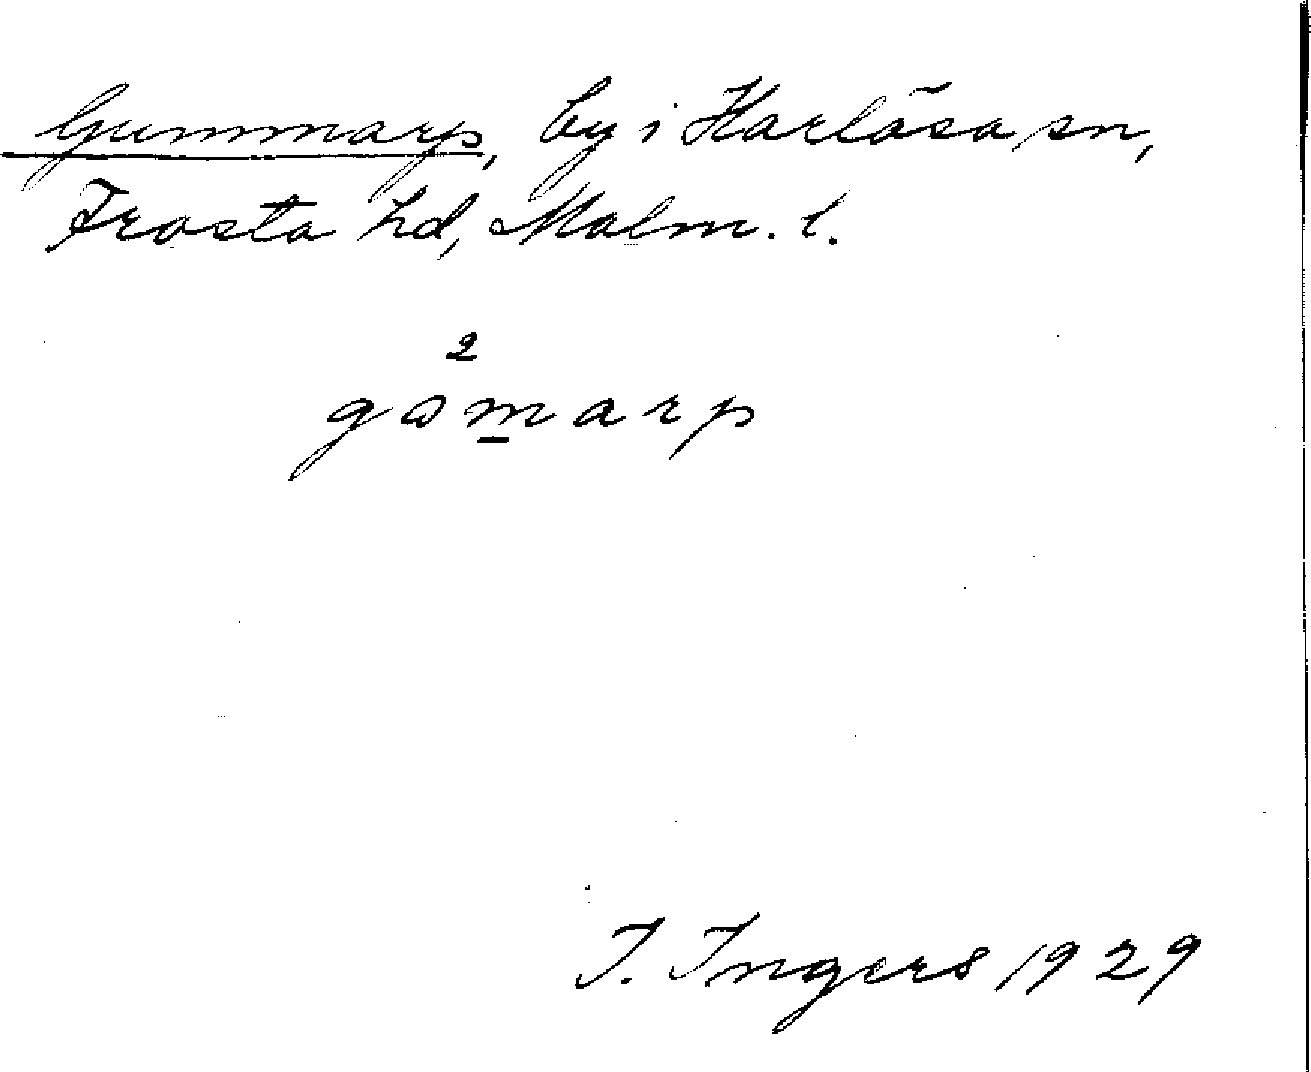 Gummarp, by i Harlösa sn,
Frosta hd, Malm. l.
2
gömarp
I. Ingers 1929